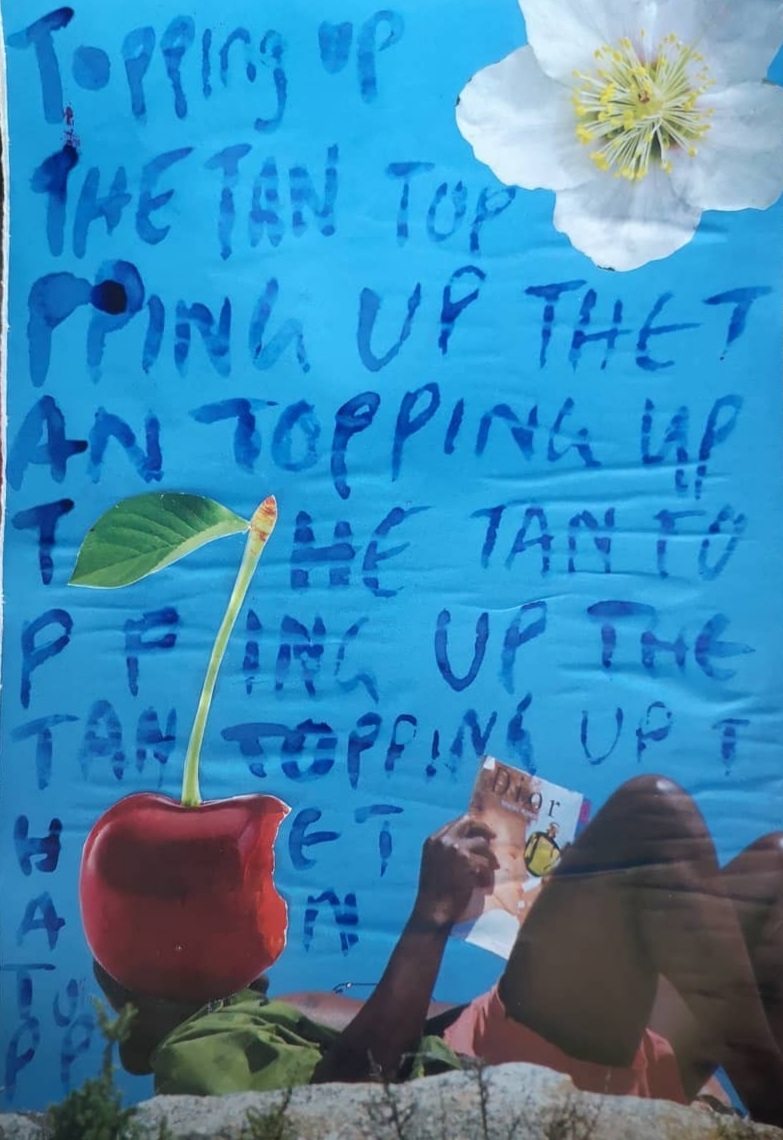 Topping UP
THE TAN TOP
PPING UP THE T
AN TOPPING UP
T HE TAN TO
P P ING UP THE
TAN TOPPING UP T
Dior
H E T
A N
TO
PP